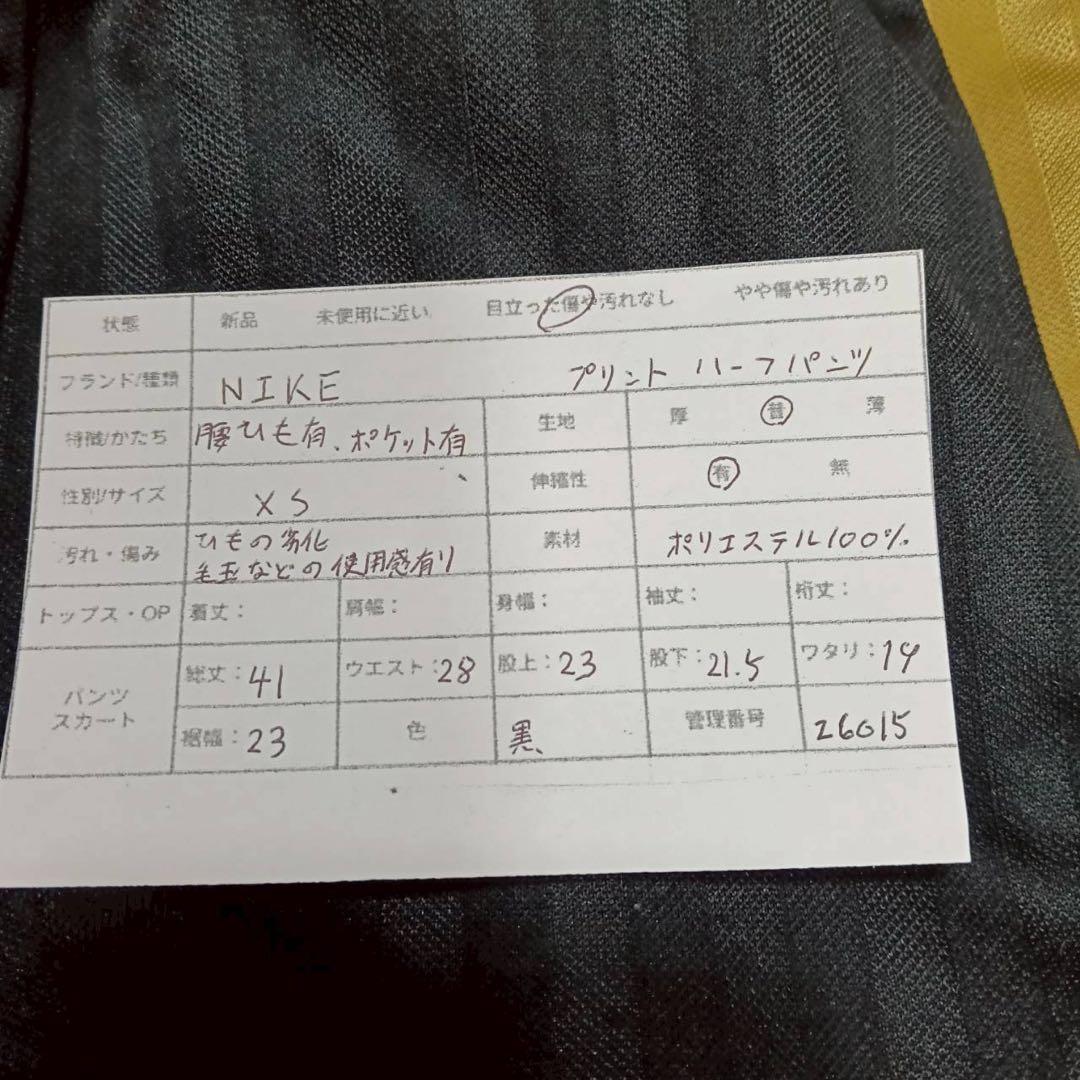 状態 新品 未使用に近い 目立った傷や汚れなし やや傷や汚れあり
ブランド/種類 NIKE プリント ハーフパンツ
特徴/かたち 腰ひも有、ポケット有 生地 厚 普 薄
性別/サイズ XS 伸縮性 有 無
汚れ・傷み ひもの劣化 素材 ポリエステル100%
毛玉などの使用感有り
トップス・OP 着丈: 肩幅: 身幅: 袖丈: 裄丈:
パンツ スカート 総丈:41 ウエスト:28 股上:23 股下:21.5 ワタリ:19
裾幅:23 色 黒 管理番号 26015